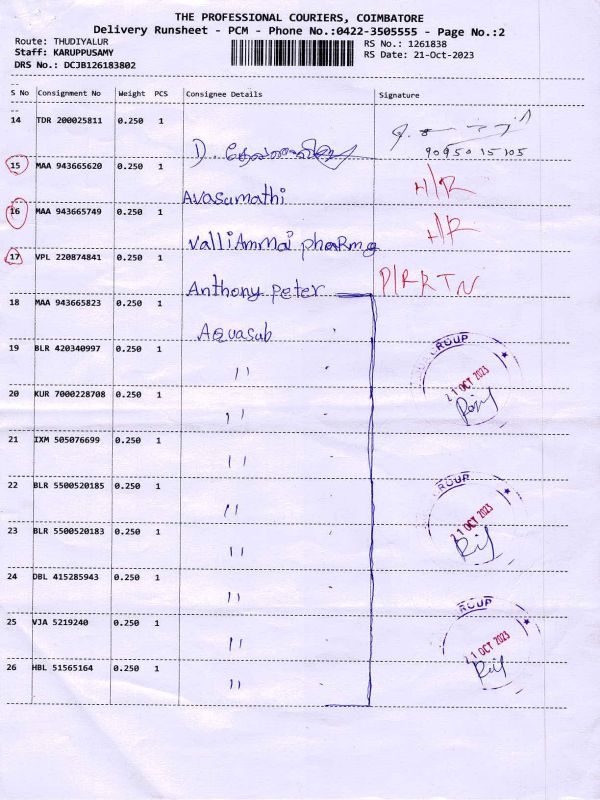 THE PROFESSIONAL COURIERS, COIMBATORE
Delivery Runsheet - PCM - Phone No.:0422-3505555 - Page No.:2
Route: THUDIYALUR RS No.: 1261838
Staff: KARUPPUSAMY RS Date: 21-Oct-2023
DRS No.: DCJB126183802
S No Consignment No Weight PCS Consignee Details Signature
14 TDR 200025811 0.250 1 D.
9095015105
15 MAA 943665620 0.250 1 Avasumathi H/R
16 MAA 943665749 0.250 1 ValliAmmai pharma H/R
17 VPL 220874841 0.250 1 Anthony peter D/R RTN
18 MAA 943665823 0.250 1 Aquasub
19 BLR 420340997 0.250 1 11 ROUP
21 OCT 2023
20 KUR 7000228708 0.250 1 11
21 IXM 505076699 0.250 1 11
22 BLR 5500520185 0.250 1 11 ROUP
21 OCT 2023
23 BLR 5500520183 0.250 1 11
24 DBL 415285943 0.250 1 11
ROUP
25 VJA 5219240 0.250 1 11 21 OCT 2023
26 HBL 51565164 0.250 1 11